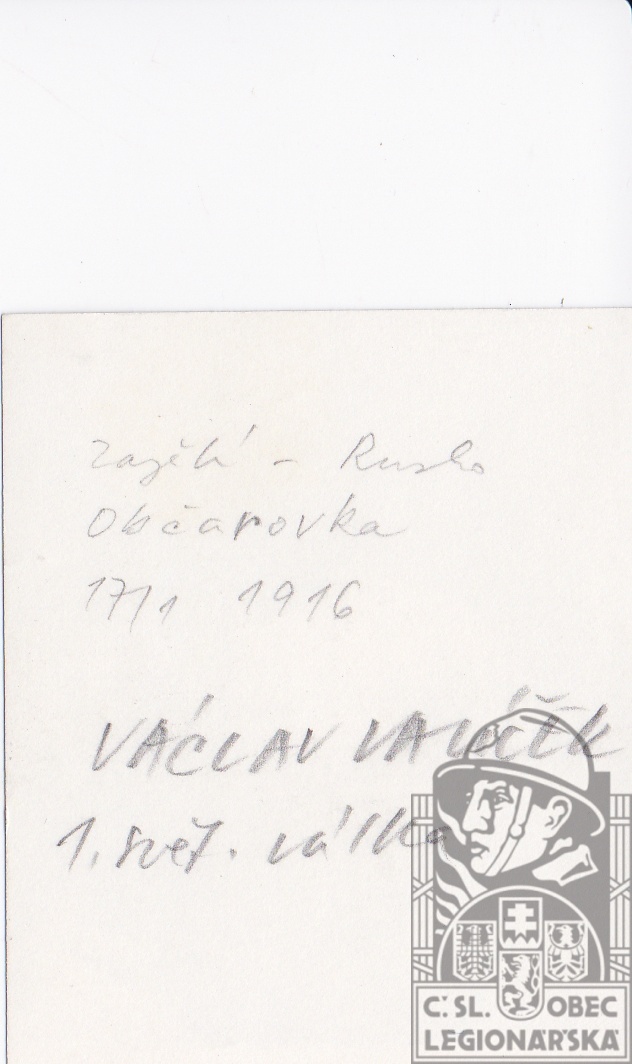 zajetí - Rusko
Občarovka
17/1 1916
VÁCLAV
1. svět. válka
Č. SL. OBEC
LEGIONÁŘSKÁ